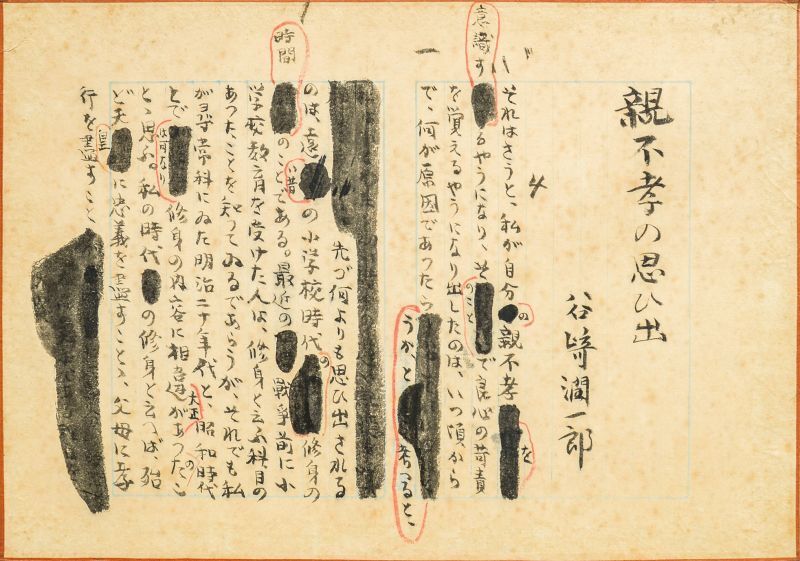 親不孝の思ひ出
谷崎潤一郎
一
それはさうと、私が自分の親不孝を
意識するやうになり、そのことで良心の苛責
を覚えるやうになり出したのは、いつ頃から
で、何が原因であつたらうかと考へると、
先づ何よりも思ひ出される
のは、遠い昔の小学校時代の修身の
時間のことである。最近の戦争前に小
学校教育を受けた人は、修身と云ふ科目の
あつたことを知つてゐるであらうが、それでも私
が尋常科にゐた明治二十年代と、大正昭和時代
とでは可なり修身の内容に相違があつたこ
とゝ思ふ。私の時代の修身と云へば、殆
ど天皇に忠義を盡すことゝ、父母に孝
行を盡すこと